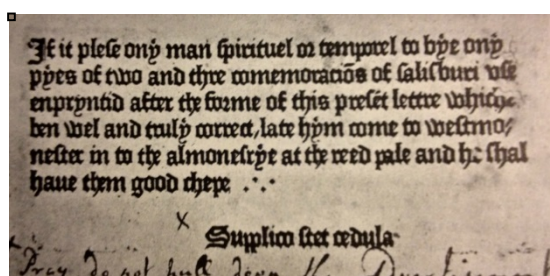 If it plese ony man spirituel or temporel to bye ony
pyes of two and thre comemoraciōs of salisburi vse
enpryntid after the forme of this presēt lettre whiche
ben wel and truly correct, late hym come to westmo⸗
nester in to the almonesrye at the reed pale and he shal
haue them good chepe .·.·
X
Supplico stet cedula
Pray do not pull down the Advertisement